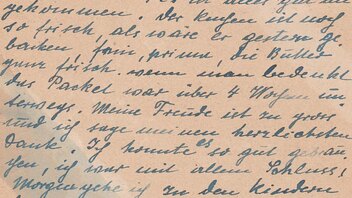 gekommen. Der Kuchen ist noch
so frisch, als wäre er gestern ge
backen, fein, prima, die Butter
ganz frisch. wenn man bedenkt
das Packet war über 4 Wochen un
terwegs. Meine Freude ist zu gross
und ich sage meinen herzlichsten
Dank. Ich konnte es so gut gebrau
chen, ich war mit allem Schluss!
Morgen gehe ich zu den Kindern